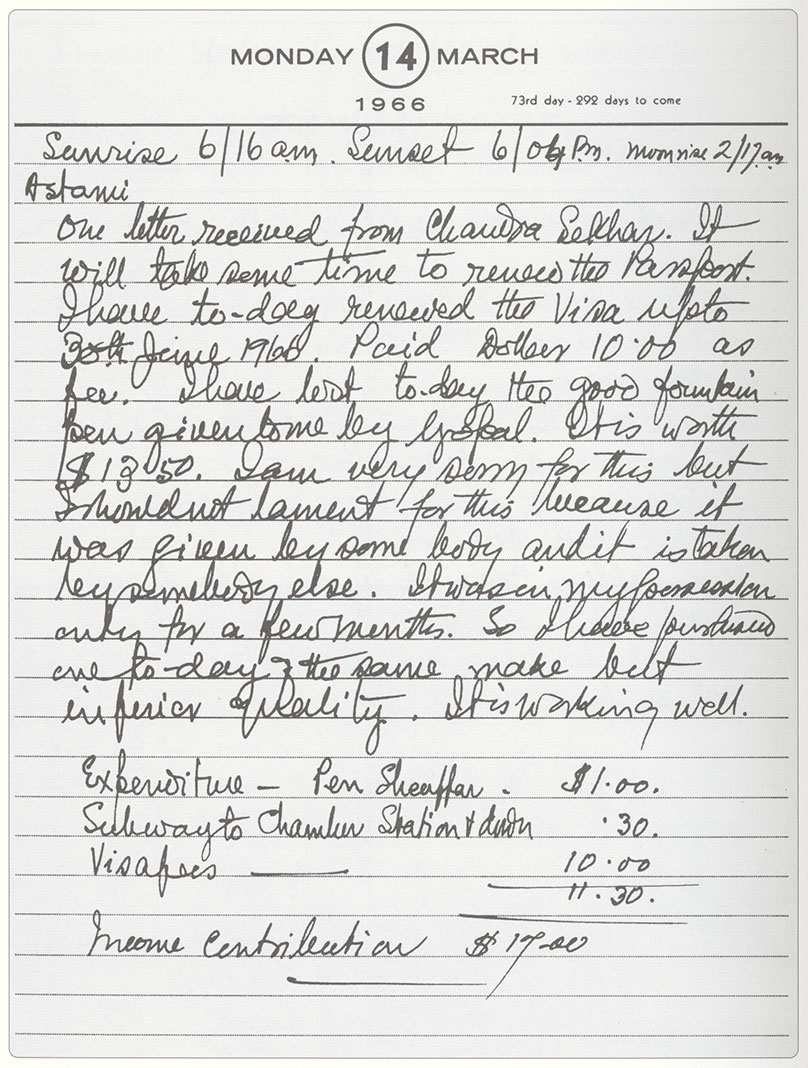 MONDAY 14 MARCH
1966 73rd day - 292 days to come
Sunrise 6/16 am. Sunset 6/04 Pm. moonrise 2/17 am
Astami
One letter received from Chandra Sekhar. It
will take some time to renew the Passport.
I have to-day renewed the Visa upto
30th June 1966. Paid Doller 10.00 as
fee. I have lost to-day the good fountain
pen given to me by Gopal. It is worth
$13.50. I am very sorry for this but
I should not lament for this because it
was given by some body and it is taken
by somebody else. It was in my possession
only for a few months. So I have purchased
one to-day the same make but
inferior quality. It is working well.
Expenditure — Pen Sheaffar - $1.00.
Subway to Chamber Station & down .30.
Visa fees — 10.00
11.30.
Income Contribution $17.00